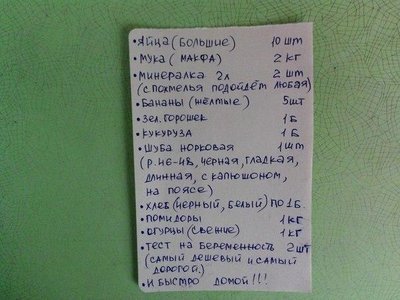 • Яйца (большие) 10 шт
• Мука (МАКФА) 2 кг
• Минералка 2л 2 шт
(с похмелья подойдёт любая)
• Бананы (жёлтые) 5шт
• Зел. горошек 1Б
• Кукуруза 1Б
• Шуба норковая 1шт
(р. 46-48, чёрная, гладкая,
длинная, с капюшоном,
на поясе)
• Хлеб (чёрный, белый) по 1Б.
• Помидоры 1кг
• Огурцы (свежие) 1кг
• Тест на беременность 2шт
(самый дешёвый и самый
дорогой.)
• И быстро домой!!!